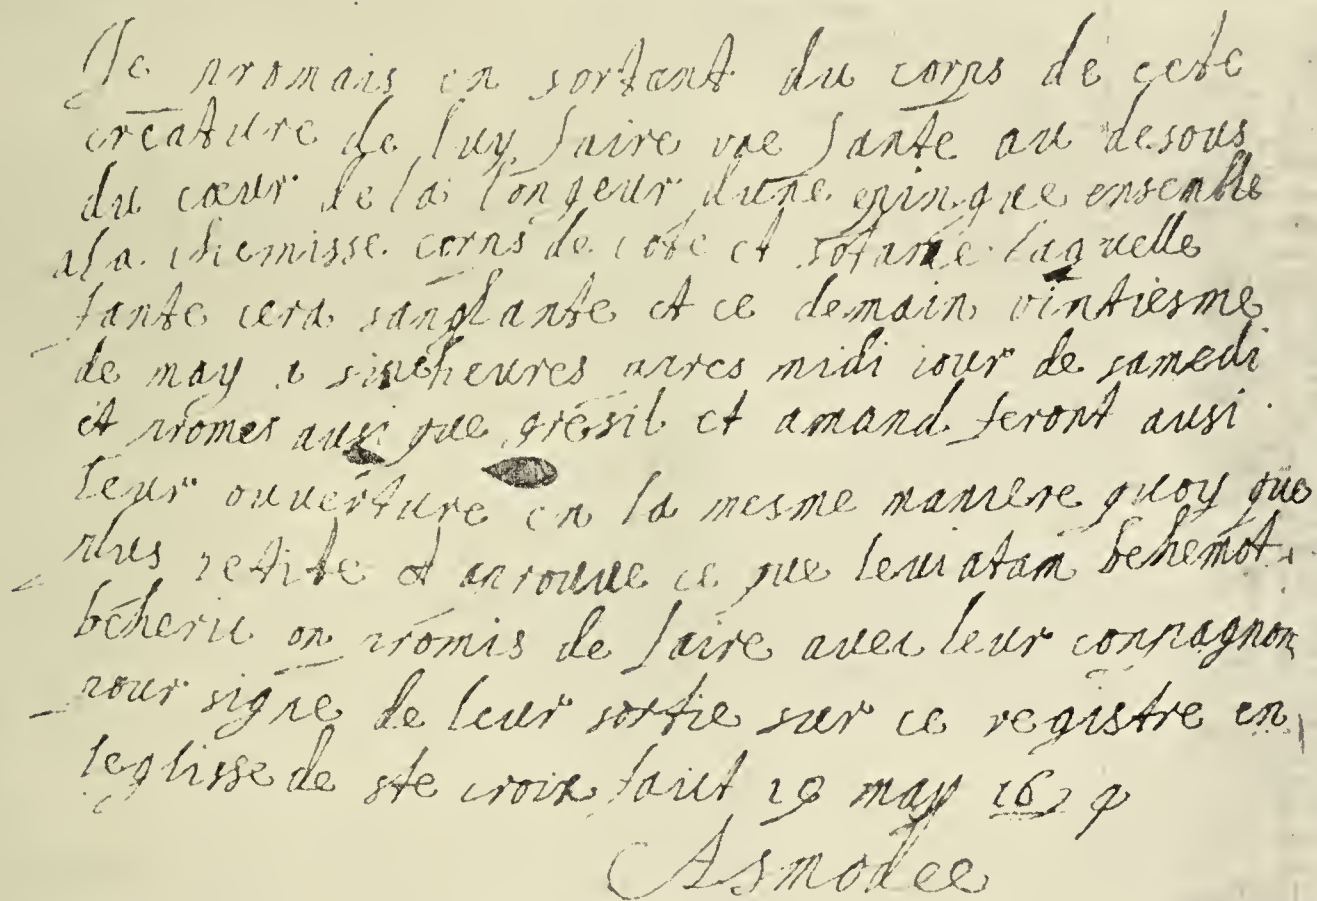 Je promais en sortant du corps de cete
creature de luy faire une fante au desous
du cœur de la longeur dune epingue ensemble
a la chemisse corps de cote et sotane laquelle
fante cera sanglante et ce demain vintiesme
de may a sincheures apres midi iour de samedi
et promet ausi que gresil et amand feront ausi
leur ouverture en la mesme maniere quoy que
plus petite et aprouve ce que leviatam behemot
beherie on promis de faire avec leur conpagnon
pour signe de leur sortie sur ce registre en
leglisse de ste croix faict 19 may
Asmodee